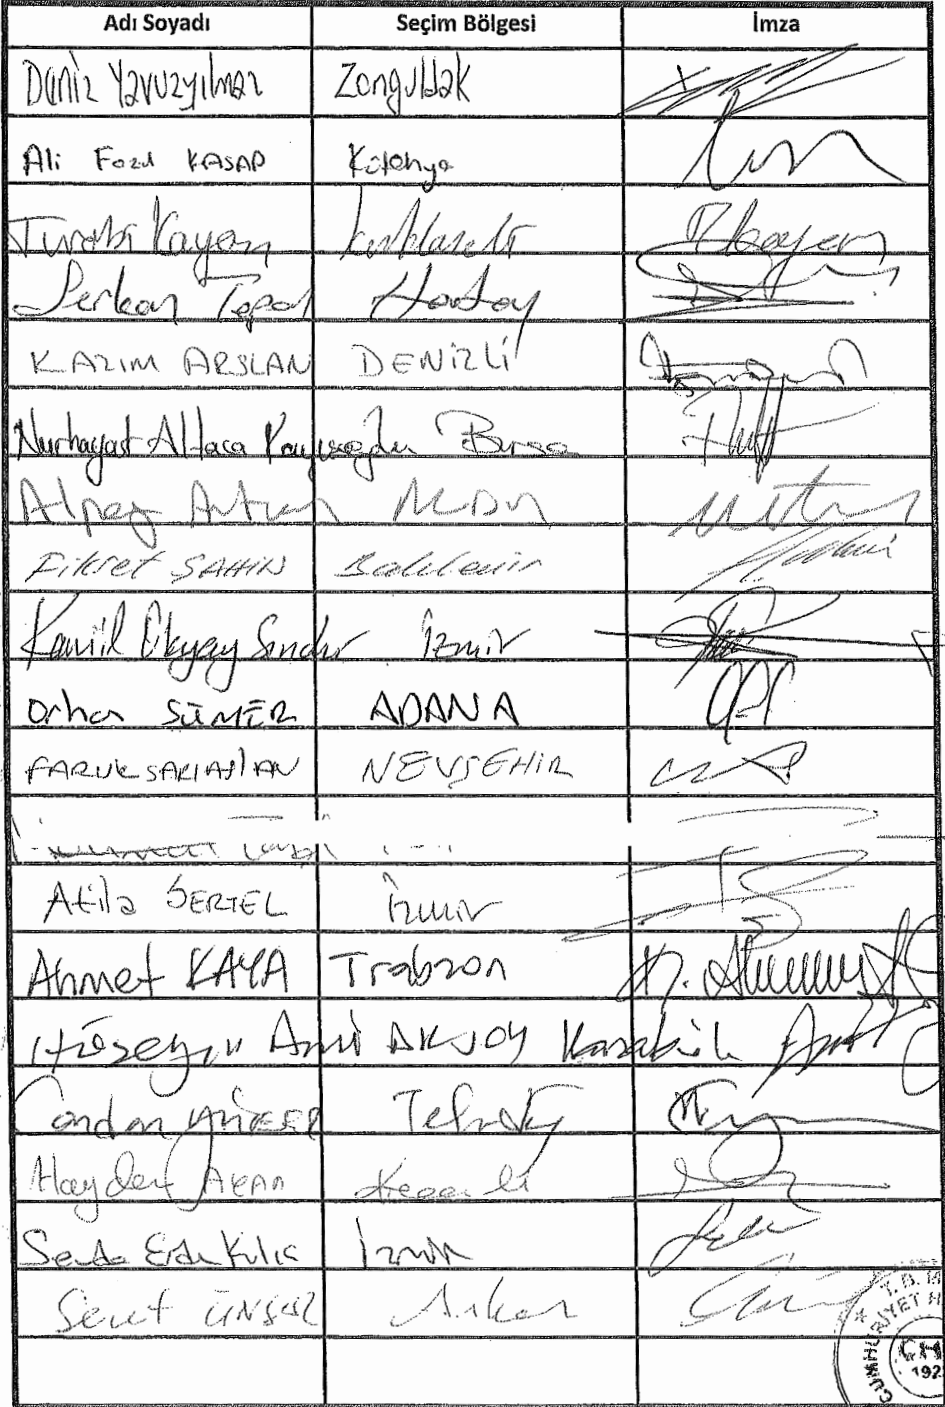 Adı Soyadı Seçim Bölgesi İmza
Deniz Yavuzyılmaz Zonguldak
Ali Fazıl KASAP Kütahya
Turabi Kayan Kırklareli
Serkan Topal Hatay
KAZIM ARSLAN DENİZLİ
Nurhayat Altaca Kayışoğlu Bursa
Alpay Antmen
Fikret ŞAHİN Balıkesir
Kamil Okyay Sındır İzmir
Orhan SÜMER ADANA
FARUK SARIASLAN NEVŞEHİR
Atila SERTEL İzmir
Ahmet KAYA Trabzon
Hüseyin Avni AKSOY Karabük
Candan YÜCEER Tekirdağ
Haydar AKAR Kocaeli
Sevda Erdan Kılıç İzmir
Servet ÜNSAL Ankara
T.B.M.
CUMHURİYET H
CH
192